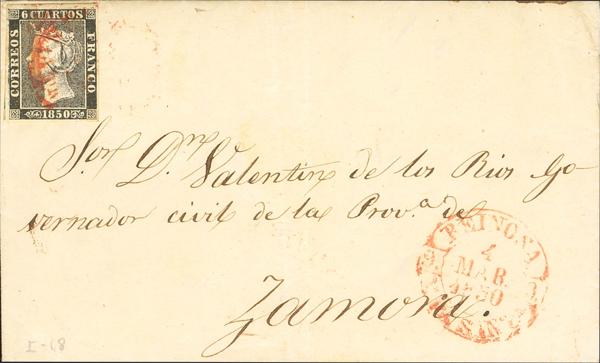 6 CUARTOS
CORREOS
FRANCO
1850
Sor. Dn. Valentin de los Rios Go-
vernador civil de la Prova. de
Zamora.
REINOSA
4
MAR.
1850
I-68